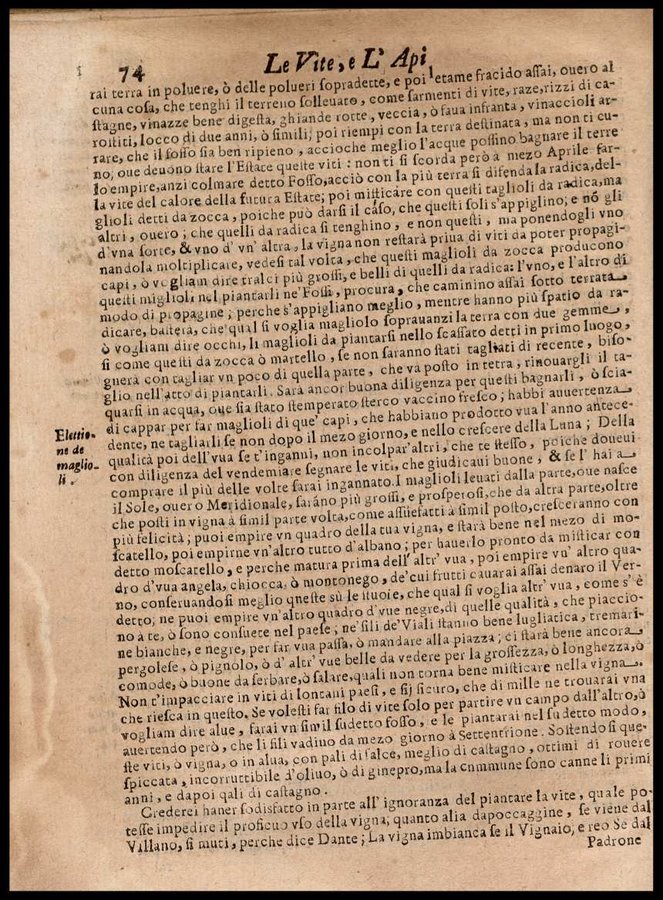 74
Le Vite, e L' Api
rai terra in poluere, ò delle polueri sopradette, e poi letame fracido assai, ouero al
cuna cosa, che tenghi il terreno solleuato, come sarmenti di vite, raze, rizzi di ca-
stagne, vinazze bene digesta, ghiande rotte, veccia, ò faua infranta, vinaccioli ar-
rostiti, locco di due anni, ò simili; poi riempi con la terra destinata, ma non ti cu-
rare, che il fosso sia ben ripieno, accioche meglio l'acque possino bagnare il terre
no, oue deuono stare l'Estate queste viti: non ti si scorda però a mezo Aprile far-
lo empire, anzi colmare detto Fosso, acciò con la più terra si difenda la radica, del-
la vite del calore della futura Estate; poi misticare con questi taglioli da radica, ma
glioli detti da zocca, poiche può darsi il caso, che questi soli s'appiglino; e nó gli
altri, ouero; che quelli da radica si tenghino, e non questi, ma ponendogli vno
d'vna sorte, & vno d' vn' altra, la vigna non restarà priua di viti da poter propagi-
nandola moltiplicare, vedesi tal volta, che questi maglioli da zocca producono
capi, ò vogliam dire tralci più grossi, e belli di quelli da radica: l'vno, e l'altro di
questi miglioli nel piantarli ne' Fossi, procura, che caminino assai sotto terrata
modo di propagine; perche s'appigliano meglio, mentre hanno più spatio da ra-
dicare, basterà, che qual si voglia magliolo soprauanzi la terra con due gemme,
ò vogliam dire occhi, li maglioli da piantarsi nello scassato detti in primo luogo,
si come questi da zocca ò martello, se non saranno tagliati di recente, biso-
gnerà con tagliar vn poco di quella parte, che và posto in terra, rinouargli il ta-
glio nell'atto di piantarli. Sarà ancor buona diligenza per questi bagnarli, ò scia-
quarsi in acqua, oue sia stato stemperato sterco vaccino fresco; habbi auuertenza
di cappar per far maglioli di que' capi, che habbiano prodotto vua l'anno antece-
dente, ne tagliarli se non dopo il mezo giorno, e nello crescere della Luna; Della
Elettio-
ne de
maglio-
li.
qualità poi dell'vua se t'inganni, non incolpar'altri, che te stesso, poiche doueui
con diligenza del vendemiare segnare le viti, che giudicaui buone, & se l' hai a
comprare il più delle volte sarai ingannato. I maglioli leuati dalla parte, oue nasce
il Sole, ouero Meridionale, saráno più grossi, e prosperosi, che da altra parte, oltre
che posti in vigna à simil parte volta, come assuefatti à simil posto, cresceranno con
più felicità; puoi empire vn quadro della tua vigna, e starà bene nel mezo di mo-
scatello, poi empirne vn'altro tutto d'albano; per hauerlo pronto da misticar con
detto moscatello, e perche matura prima dell' altr' vua, poi empire vu' altro qua-
dro d'vua angela, chiocca, ò montonego, de'cui frutti cauarai assai denaro il Ver-
no, conseruandosi meglio queste sù le stuoie, che qual si voglia altr' vua, come s' è
detto; ne puoi empire vn'altro quadro d'vue negre, di quelle qualità, che piaccio-
no à te, ò sono consuete nel paese; ne' fili de'Viali stanno bene lugliatica, tremari-
ne bianche, e negre, per far vua passa, ò mandare alla piazza; ci starà bene ancora
pergolese, ò pignolo, ò d' altr' vue belle da vedere per la grossezza, ò longhezza, ò
comode, ò buone da serbare, ò salare, quali non torna bene misticare nella vigna.
Non t'impacciare in viti di lontani paesi, e sij sicuro, che di mille ne trouarai vna
che riesca in questo. Se volesti far filo di vite solo per partire vn campo dall'altro, ò
vogliam dire alue, farai vn simil sudetto fosso, e le piantarai nel sudetto modo,
auertendo però, che li fili vadino da mezo giorno à Settentrione. Sostendo si que-
ste viti, ò vigna, o in alua, con pali di salce, meglio di castagno, ottimi di rouere
spiccata, incorruttibile d'oliuo, ò di ginepro, ma la cnmmune sono canne li primi
anni, e dapoi qali di castagno.
Crederei hauer sodisfatto in parte all' ignoranza del piantare la vite, quale po-
tesse impedire il proficuo vso della vigna; quanto alia dapoccaggine, se viene dal
Villano, si muti, perche dice Dante; La vigna imbianca se il Vignaio, e reo Se dal
Padrone